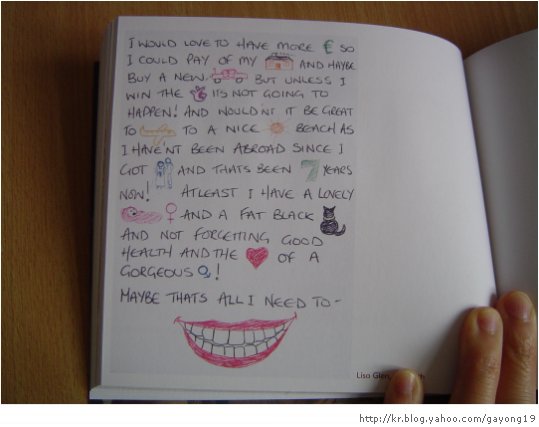 I WOULD LOVE TO HAVE MORE € SO
I COULD PAY OF MY AND MAYBE
BUY A NEW BUT UNLESS I
WIN THE ITS NOT GOING TO
HAPPEN! AND WOULDNT IT BE GREAT
TO TO A NICE BEACH AS
I HAVE'NT BEEN ABROAD SINCE I
GOT AND THATS BEEN 7 YEARS
NOW! ATLEAST I HAVE A LOVELY
♀ AND A FAT BLACK
AND NOT FORGETTING GOOD
HEALTH AND THE OF A
GORGEOUS ♂!
MAYBE THATS ALL I NEED TO -
Lisa Glen,
http://kr.blog.yahoo.com/gayong19